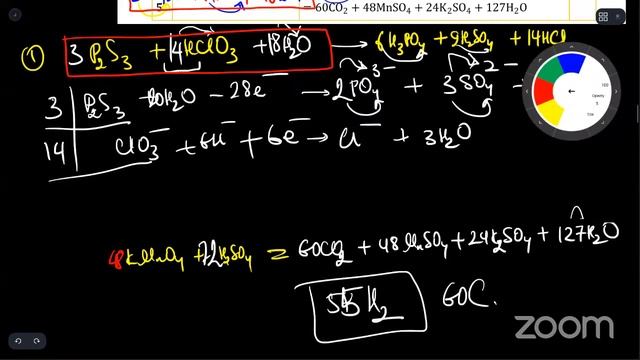 60CO₂ + 48MnSO₄ + 24K₂SO₄ + 127H₂O
① 3P₂S₃ + 14HClO₃ + 18H₂O → 6H₃PO₄ + 9H₂SO₄ + 14HCl
3 | P₂S₃ + 20H₂O − 28e⁻ → 2PO₄³⁻ + 3SO₄
14 | ClO₃⁻ + 6H + 6e⁻ → Cl⁻ + 3H₂O
48KMnO₄ + 72H₂SO₄ = 60CO₂ + 48MnSO₄ + 24K₂SO₄ + 127H₂O
H₂ 60C.
zoom